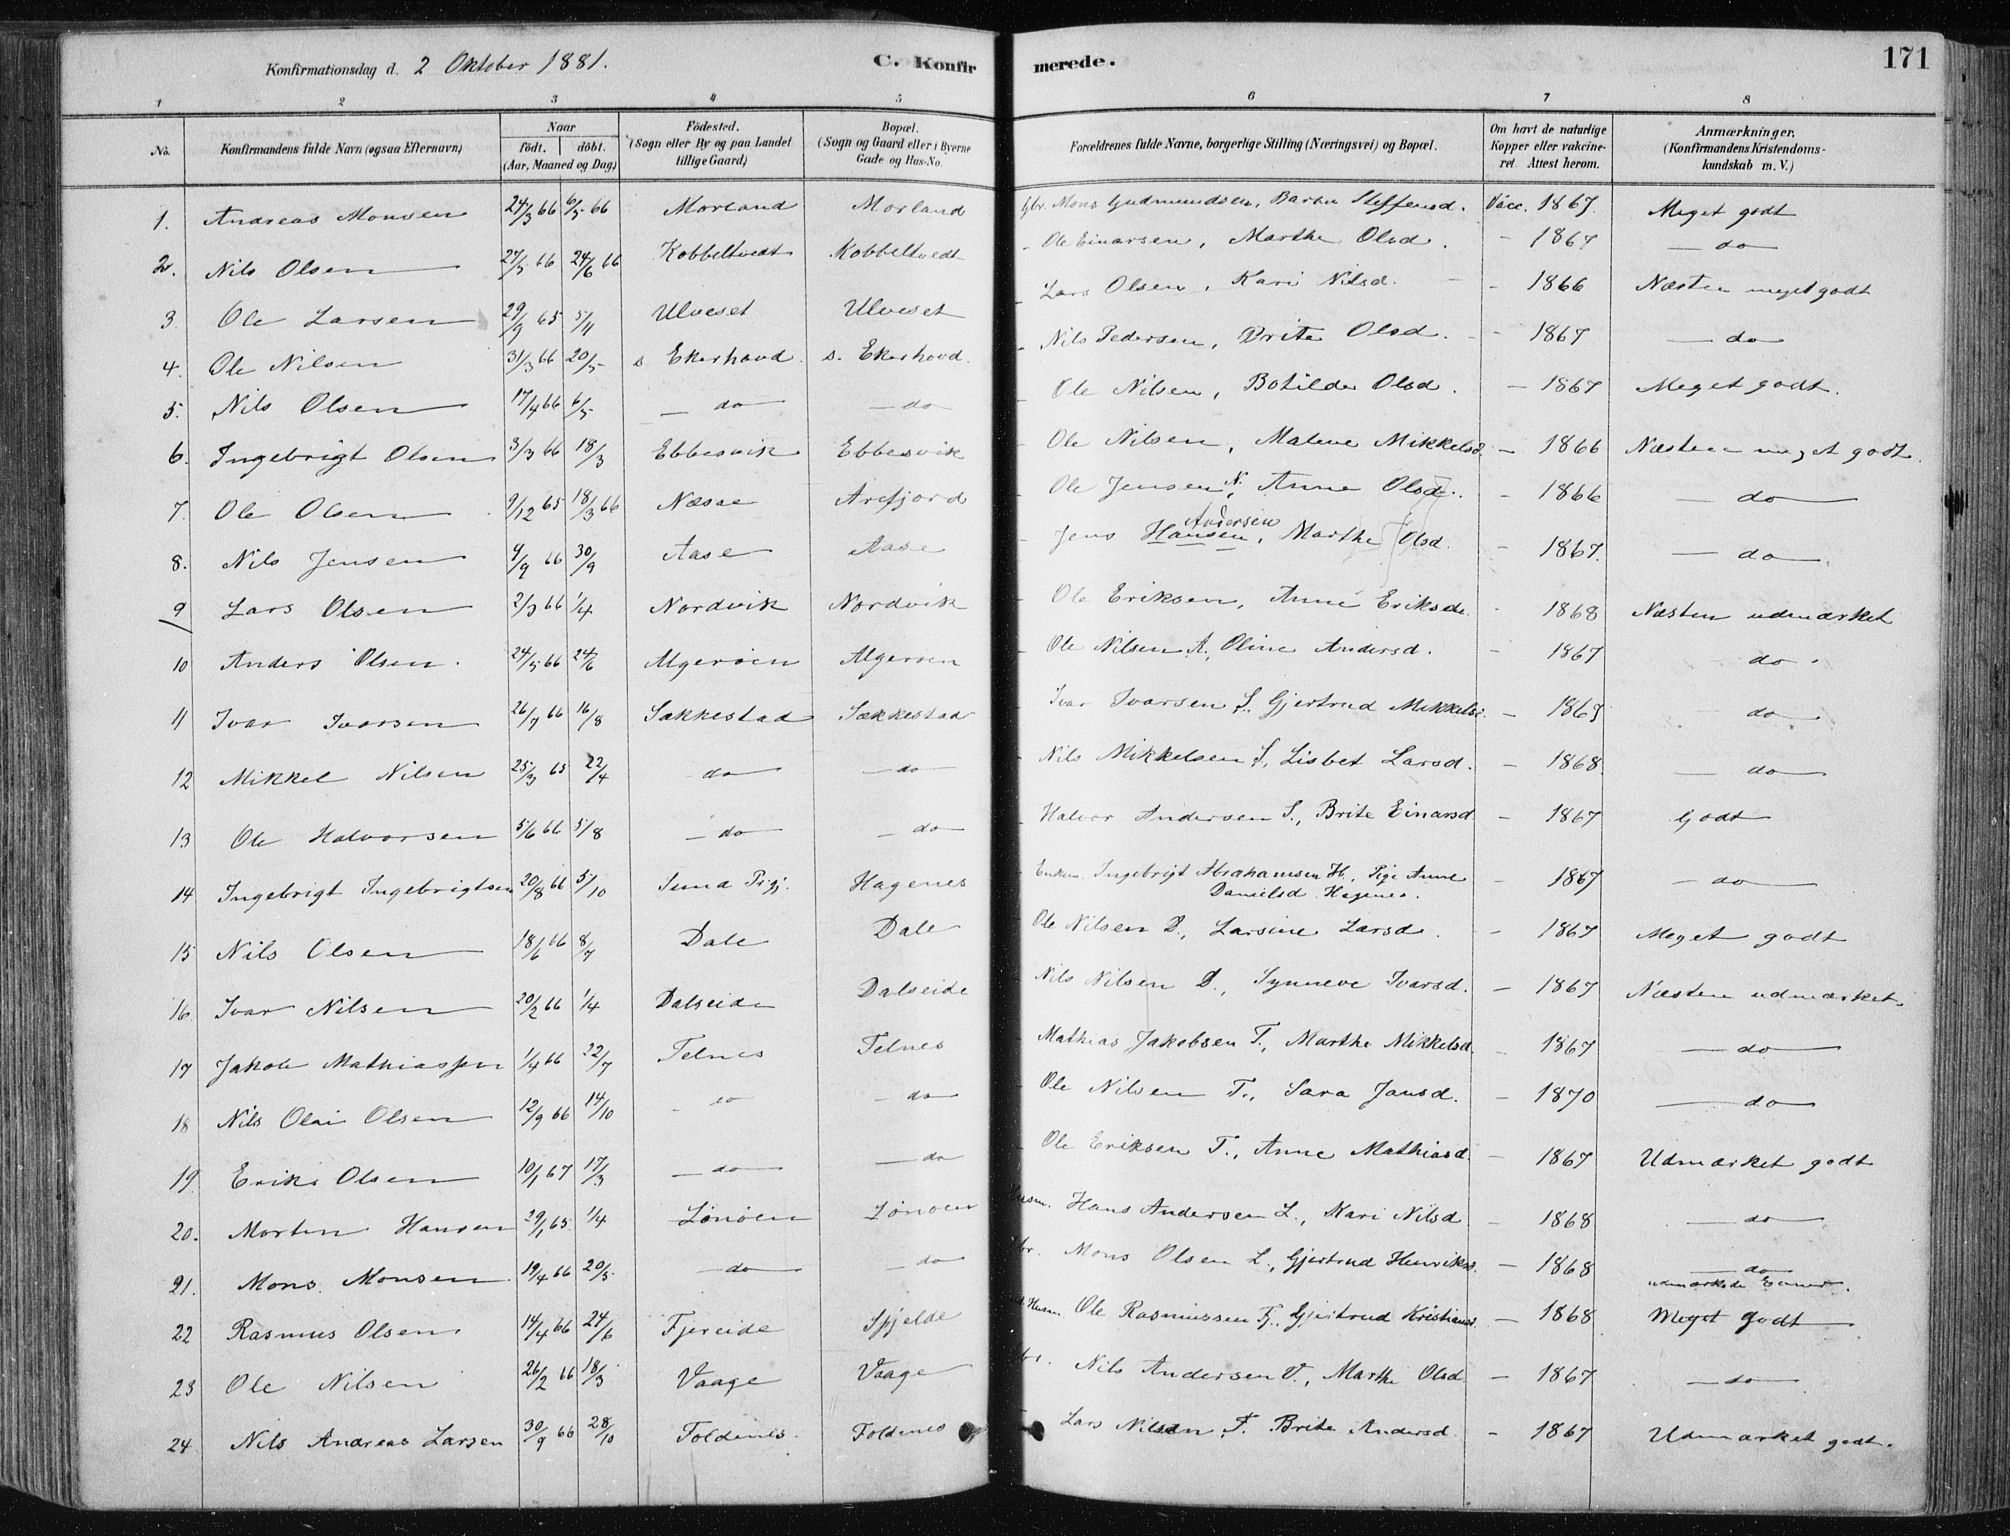 Konfirmationsdag d. 2 Oktober 1881. C. Konfirmerede. 171
1 2 3 4 5 6 7 8
No. Konfirmandens fulde Navn (ogsaa Efternavn) Naar født. døbt. (Aar, Maaned og Dag) Fødested. (Sogn eller By og paa Landet tillige Gaard) Bopæl. (Sogn og Gaard eller i Byerne Gade og Hus-No. Forældrenes fulde Navne, borgerlige Stilling (Næringsvei) og Bopæl. Om havt de naturlige Kopper eller vakcineret. Attest herom. Anmærkninger. (Konfirmandens Kristendomskundskab m. V.)
1. Andreas Monsen 24/3 66 6/5 66 Morland Morland Gbr. Mons Gudmundsen, Barbu Steffensd. Vacc. 1867. Meget godt
2. Nils Olsen 27/5 66 24/6 66 Kobbeltvedt Kobbeltvedt - Ole Einarsen, Marthe Olsd. - 1867 - do -
3. Ole Larsen 29/9 65 5/11 Ulveset Ulveset - Lars Olsen, Kari Nilsd. - 1866 Næsten meget godt
4. Ole Nilsen 31/3 66 20/5 s. Ekerhovd s. Ekerhovd. - Nils Pedersen, Brite Olsd. - 1867 - do -
5. Nils Olsen 17/4 66 6/5 - do - - do - - Ole Nilsen, Botilde Olsd. - 1867 Meget godt.
6. Ingebrigt Olsen 3/3 66 18/3 Ebbesvik Ebbesvik - Ole Nilsen, Malene Mikkelsd. - 1866 Næsten meget godt
7. Ole Olsen 9/12 65 18/3 66 Næsse Arefjord - Ole Jensen N., Anne Olsd. - 1866 - do -
8. Nils Jensen 9/9 66 30/9 Aase Aase - Jens Hansen Andersen, Marthe Olsd. - 1867. - do -
9 Lars Olsen 2/3 66 1/4 Nordvik Nordvik - Ole Eriksen, Anne Eriksd. - 1868 Næsten udmærket
10 Anders Olsen. 24/5 66 24/6 Algerøen Algerøen - Ole Nilsen A., Oline Andersd. - 1867 - do -
11 Ivar Ivarsen 26/7 66 16/8 Sækkestad Sækkestad - Ivar Ivarsen S., Gjertrud Mikkelsd. - 1869 do
12 Mikkel Nilsen 25/3 65 22/4 - do - - do - - Nils Mikkelsen S., Lisbet Larsd. - 1868. - do -
13 Ole Halvorsen 5/6 66 5/8 - do - - do - - Halvor Andersen S., Brite Einarsd. - 1867 Godt
14 Ingebrigt Ingebrigtsen 20/8 66 5/10 Sund Prgj. Hagenes Enkem. Ingebrigt Abrahamsen H., Pige Anne Danielsd. Hagenes. - 1867 - do -
15 Nils Olsen 18/6 66 8/7 Dale Dale Ole Nilsen D., Larsine Larsd. - 1867 Meget godt
16 Ivar Nilsen 20/2 66 1/4 Dalseide Dalseide - Nils Nilsen D., Synneve Ivarsd. - 1867 Næsten udmærket.
17 Jakob Mathiassen 1/4 66 22/7 Telnes Telnes Mathias Jakobsen T., Marthe Mikkelsd. - 1867 - do -
18 Nils Olai Olsen 12/9 66 14/10 - do - do - - Ole Nilsen T., Sara Jansd. - 1870 - do -
19 Erik Olsen 10/1 67 17/3 - do - - do - Ole Eriksen T., Anne Mathiasd. - 1867 Udmærket godt
20. Morten Hansen 29/1 65. 1/4 Lønøen Lønøen Husm. Hans Andersen L., Kari Nilsd. - 1868 - do -
21. Mons Monsen. 19/4 66 20/5. - do - - do - Gbr. Mons Olsen L., Gjertrud Henriksd. - 1868 - do - udmærkede Evner.
22 Rasmus Olsen 14/4 66 24/6 Fjereide Spjelde Husm. Ole Rasmussen Fj., Gjertrud Kristiansd. - 1868 Meget godt
23 Ole Nilsen 26/2 66 18/3 Vaage Vaage Gbr. Nils Andersen V., Marthe Olsd. - 1867 - do -
24 Nils Andreas Larsen 30/9 66 28/10 Foldenes Foldenes - Lars Nilsen F. Brite Andersd. - 1867 Udmærket godt.